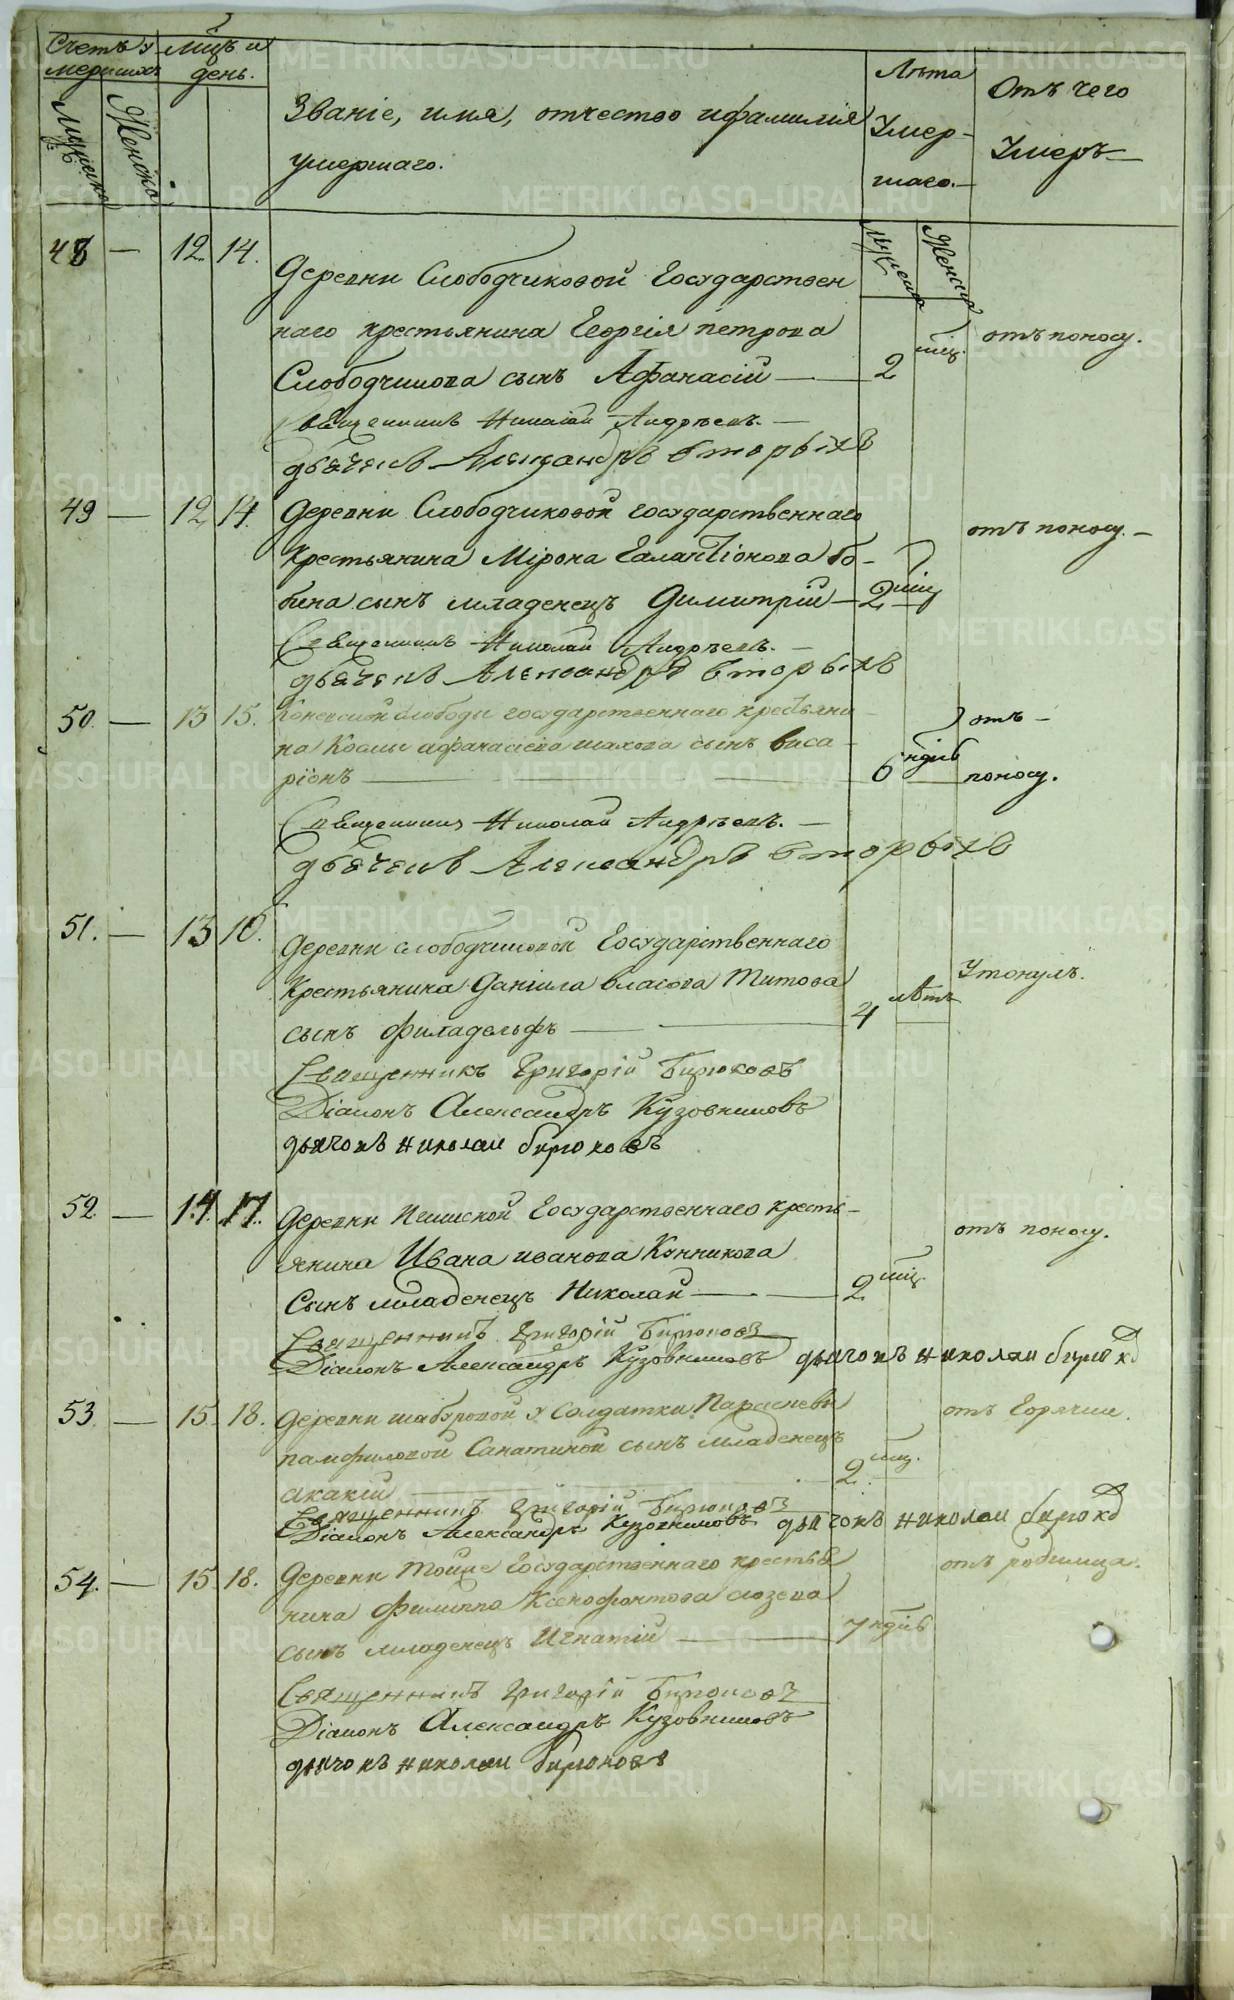 Счетъ у мершихъ
Мцъ и день.
Мужеска
Женска
Званіе, имя, отчество и фамилія
умершаго.
Лѣта
Умер-
шаго.
Мужеска
Женска
Отъ чего
Умеръ
48 — 12. 14.
Деревни Слободчиковой Государствен
наго крестьянина Георгія Петрова
Слободчикова сынъ Афанасій — 2 мц. отъ поносу.
Священникъ Николай Андреевъ.
дьячекъ Александръ Вторыхъ
49 — 12 14.
Деревни Слободчиковой государственнаго
Крестьянина Мірона Галактіонова Бо-
бина сынъ младенецъ Димитрій — 2 мц отъ поносу. —
Священникъ Николай Андреевъ.
дьячекъ Александръ Вторыхъ
50. — 13 15.
слободы государственнаго крестьяни-
на Космы Афанасіева сынъ Виса-
ріонъ — 6 ндѣль отъ — поносу.
Священникъ Николай Андреевъ. —
дьячекъ Александръ Вторыхъ
51. — 13 16.
Деревни Слободчиковой Государственнаго
Крестьянина Даніила Власова Титова
сынъ Филадельфъ — 4 лѣтъ Утонулъ.
Священникъ Григорій Бирюковъ
Діаконъ Александръ Кузовниковъ
дьячокъ Николай Бирюковъ
52. — 14. 17.
Деревни Государственнаго кресть-
янина Ивана Иванова Конникова
Сынъ младенецъ Николай — 2 мц. отъ поносу.
Священникъ Григорій Бирюковъ
Діаконъ Александръ Кузовниковъ дьячокъ Николай Бирюковъ
53. — 15. 18.
Деревни Шабуровой у солдатки Параскевы
Памфиловой сынъ младенецъ
Акакій — 2 мц. отъ Горячки.
Священникъ Григорій Бирюковъ
Діаконъ Александръ Кузовниковъ дьячокъ Николай Бирюковъ
54. — 15. 18.
Деревни Тойже Государственнаго крестья
нина Филиппа Ксенофонтова
сынъ младенецъ Игнатій — 7 ндѣль отъ родимца.
Священникъ Григорій Бирюковъ
Діаконъ Александръ Кузовниковъ
дьячокъ Николай Бирюковъ
METRIKI.GASO-URAL.RU